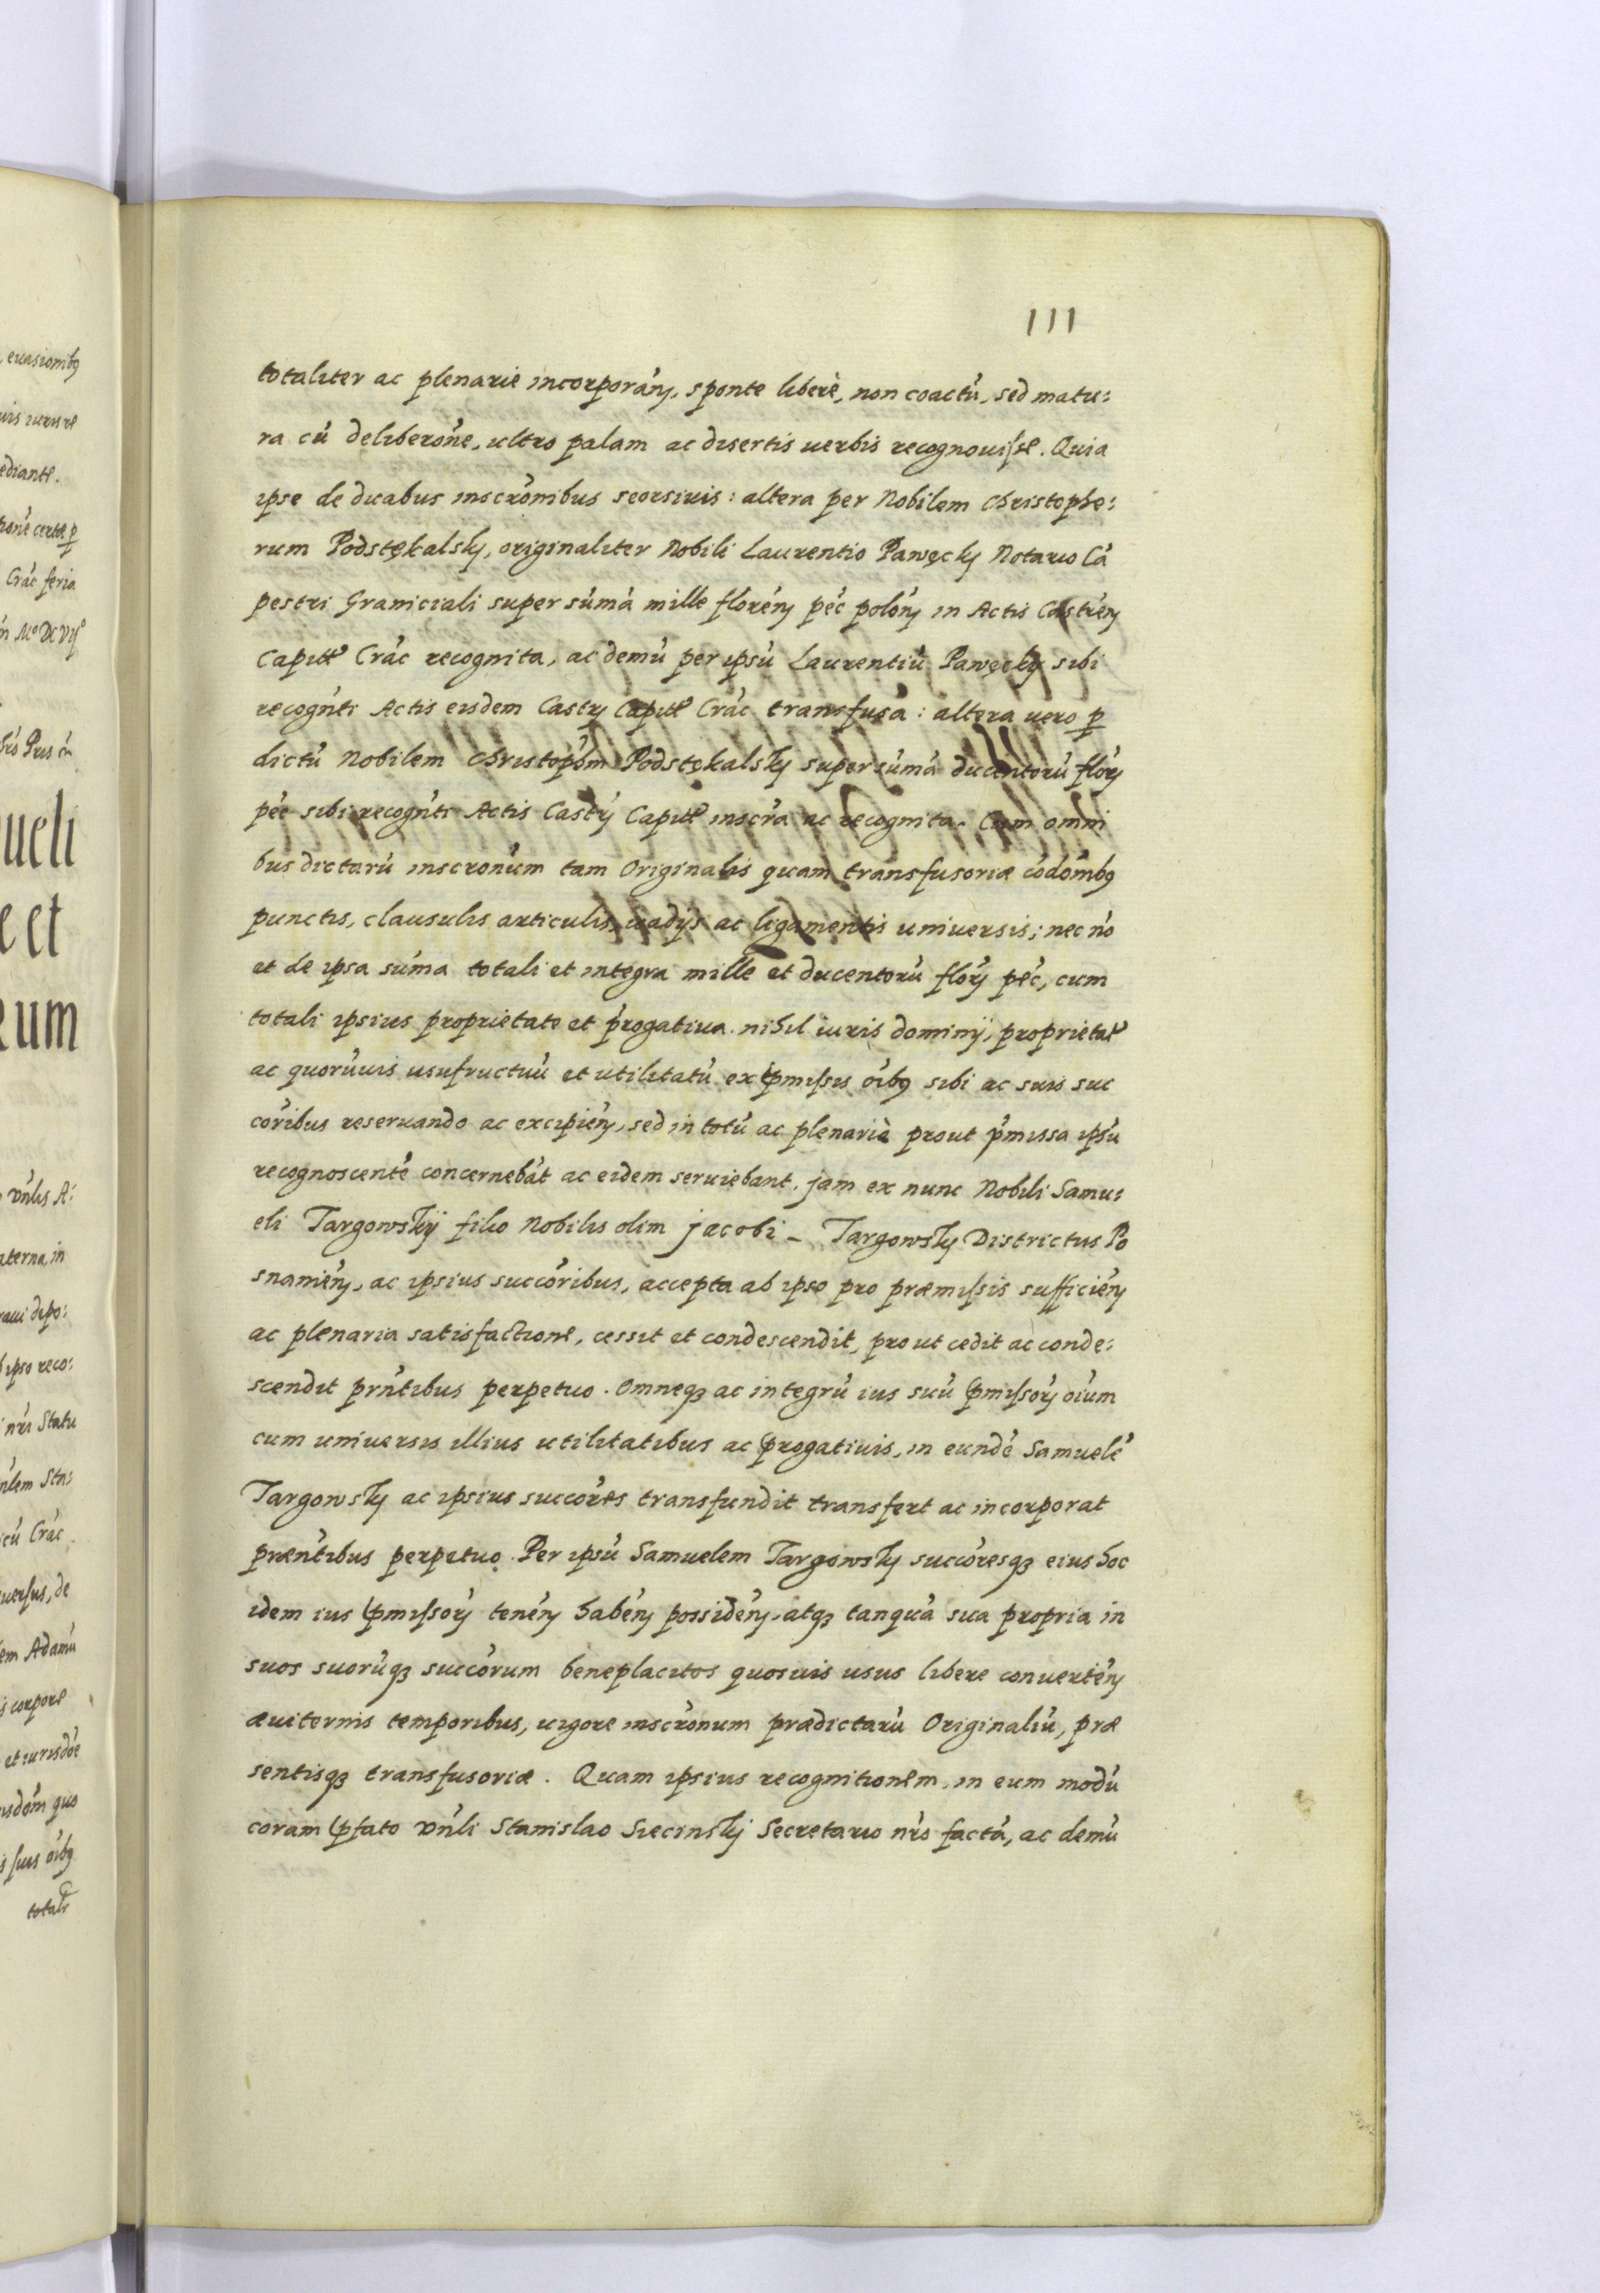 111
totaliter ac plenarie incorporań, sponte liberè, non coactú, sed matu:
ra cú deliberońe, ultro palam ac disertis uerbis recognouisse. Quia
ipse de duabus inscrońibus seorsiuis: altera per Nobilem Christopho:
rum Podstękalsky, originaliter Nobili Laurentio Pawęcky Notario Cá
pestri Graniciali super súmá mille floreń péc poloń in Actis Castreń
Capitł Crác recognita, ac demú per ipsú Laurentiú Pawęcky sibi
recogńti Actis eisdem Castŕ Capitł Crác transfusa: altera uero p
dictú Nobilem Christophm Podstękalsky super súmá ducentorú floŕ
péc sibi recogńti Actis Castŕ Capitł inscŕa ac recognita. Cum omni
bus dictarú inscrońum tam Originalis quam transfusoriæ códońibq
punctis, clausulis articulis, uadijs ac ligamentis uniuersis; nec nó
et de ipsa súma totali et integra mille et ducentorú floŕ péc, cum
totali ipsius proprietate et ṕrogatiua. nihil iuris dominij, proprietat
ac quorúuis usufructuú et utilitatú ex pmissis óibq sibi ac suis suc
córibus reseruando ac excipień, sed in totú ac plenariè prout ṕmissa ipsú
recognoscenté concernebát ac eidem seruiebant, jam ex nunc Nobili Samu:
eli Targowskij filio Nobilis olim jacobi - Targowsky Districtus Po
snanień, ac ipsius succóribus, accepta ab ipso pro præmissis sufficień
ac plenaria satisfactione, cessit et condescendit, prout cedit ac conde:
scendit pŕntibus perpetuo. Omneq3 ac integrú ius suú pmissoŕ óium
cum uniuersis illius utilitatibus ac progatiuis, in eundé Samuelé
Targowsky ac ipsius succóres transfundit transfert ac incorporat
præńtibus perpetuo. Per ipsú Samuelem Targowsky succóresq3 eius hoc
idem ius pmissoŕ teneń habeń possideń, atq3 tanquá sua propria in
suos suorúq3 succórum beneplacitos quosuis usus libere conuerteń
æuiternis temporibus, uigore inscrońum prædictarú Originaliú, præ
sentisq3 transfusoriæ. Quam ipsius recognitionem, in eum modú
coram pfato vńli Stanislao Siecinsky Secretario nŕo factá, ac demú